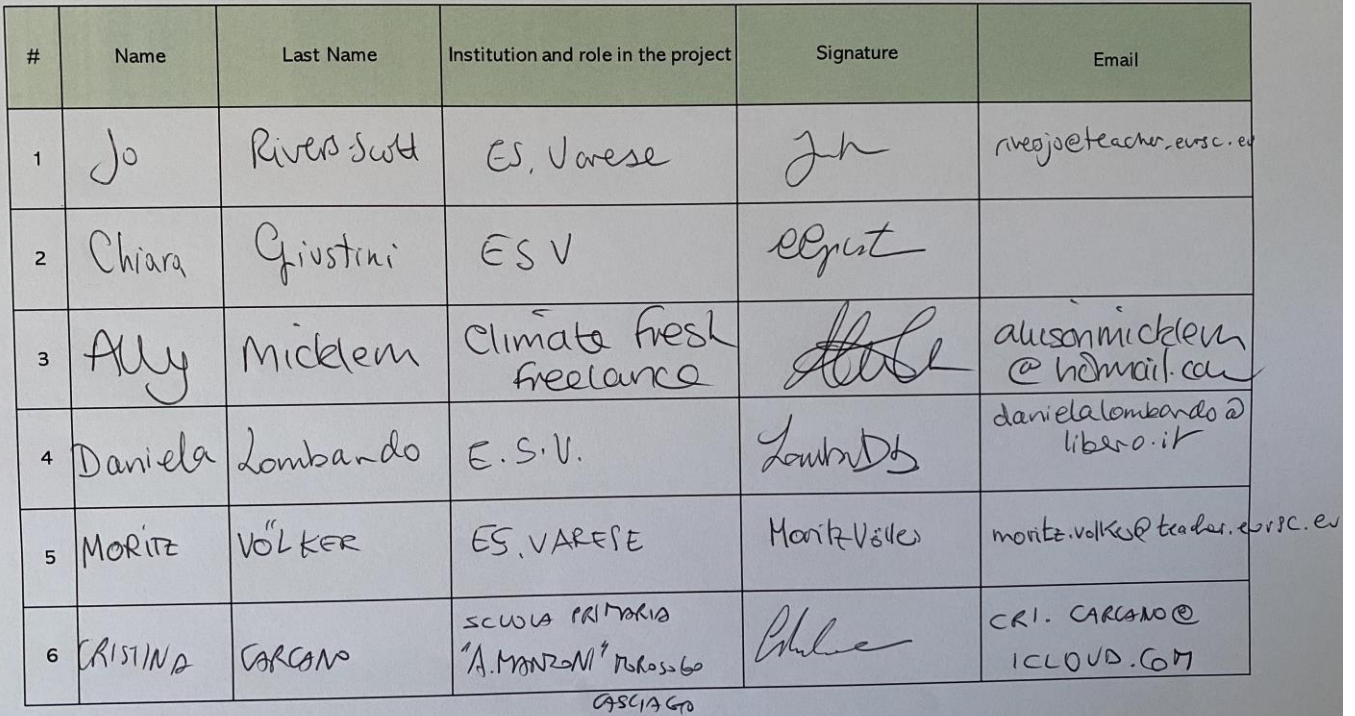 # Name Last Name Institution and role in the project Signature Email
1 Jo Rivers-Scott ES. Varese riveojo@teacher.eursc.eu
2 Chiara Giustini ESV
3 Ally Micklem Climate fresh
freelance alisonmicklem
@hotmail.com
4 Daniela Lombardo E.S.V. danielalombardo@
libero.it
5 MORITZ VÖLKER ES. VARESE Moritz Völker moritz.volker@teacher.eursc.eu
6 CRISTINA CARCANO SCUOLA PRIMARIA
"A. MANZONI" MOROSOLO
CASCIAGO CRI. CARCANO@
ICLOUD.COM